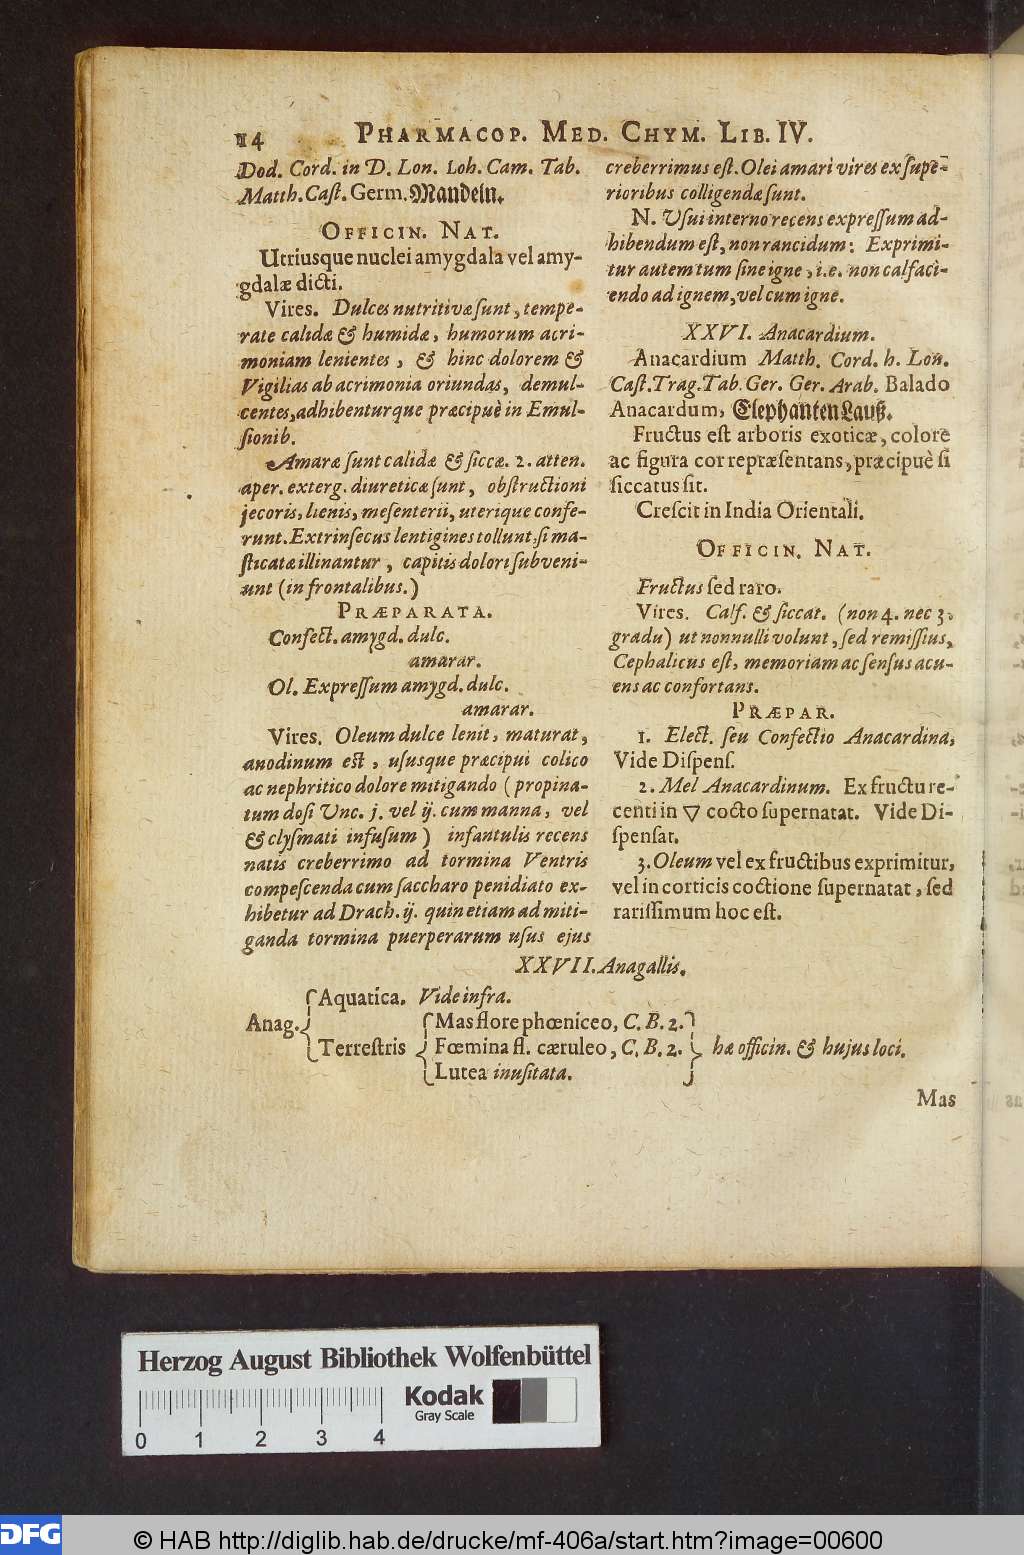 14 PHARMACOP. MED. CHYM. LIB. IV.
Dod. Cord. in D. Lon. Loh. Cam. Tab.
Matth. Caſt. Germ. Mandeln.
OFFICIN. NAT.
Utriusque nuclei amygdala vel amy-
gdalæ dicti.
Vires. Dulces nutritivæ ſunt, tempe-
rate calidæ & humidæ, humorum acri-
moniam lenientes, & hinc dolorem &
Vigilias ab acrimonia oriundas, demul-
centes, adhibenturque præcipuè in Emul-
ſionib.
Amaræ ſunt calidæ & ſiccæ. 2. atten.
aper. exterg. diureticæ ſunt, obſtructioni
jecoris, lienis, meſenterii, uterique confe-
runt. Extrinſecus lentigines tollunt, ſi ma-
ſticatæ illinantur, capitis dolori ſubveni-
unt (in frontalibus.)
PRÆPARATA.
Confect. amygd. dulc.
amarar.
Ol. Expreſſum amygd. dulc.
amarar.
Vires. Oleum dulce lenit, maturat,
anodinum eſt, uſusque præcipui colico
ac nephritico dolore mitigando (propina-
tum doſi Unc. j. vel ij. cum manna, vel
& clyſmati infuſum) infantulis recens
natis creberrimo ad tormina Ventris
compeſcenda cum ſaccharo penidiato ex-
hibetur ad Drach. ij. quin etiam ad miti-
ganda tormina puerperarum uſus ejus
creberrimus eſt. Olei amari vires ex ſupe-
rioribus colligendæ ſunt.
N. Uſui interno recens expreſſum ad-
hibendum eſt, non rancidum: Exprimi-
tur autem tum ſine igne, i.e. non calfaci-
endo ad ignem, vel cum igne.
XXVI. Anacardium.
Anacardium Matth. Cord. h. Lon.
Caſt. Trag. Tab. Ger. Ger. Arab. Balado
Anacardum, Elephanten Lauß.
Fructus eſt arboris exoticæ, colore
ac figura cor repræſentans, præcipuè ſi
ſiccatus ſit.
Creſcit in India Orientali.
OFFICIN. NAT.
Fructus ſed raro.
Vires. Calf. & ſiccat. (non 4. nec 3.
gradu) ut nonnulli volunt, ſed remiſſius,
Cephalicus eſt, memoriam ac ſenſus acu-
ens ac confortans.
PRÆPAR.
1. Elect. ſeu Confectio Anacardina,
Vide Diſpenſ.
2. Mel Anacardinum. Ex fructu re-
centi in ▽ cocto ſupernatat. Vide Di-
ſpenſat.
3. Oleum vel ex fructibus exprimitur,
vel in corticis coctione ſupernatat, ſed
rariſſimum hoc eſt.
XXVII. Anagallis.
Aquatica. Vide infra.
Anag.
Mas flore phœniceo, C. B. 2.
Terreſtris Fœmina fl. cæruleo, C. B. 2. hæ officin. & hujus loci.
Lutea inuſitata.
Mas
Herzog August Bibliothek Wolfenbüttel
Kodak
Gray Scale
0 1 2 3 4
DFG © HAB http://diglib.hab.de/drucke/mf-406a/start.htm?image=00600